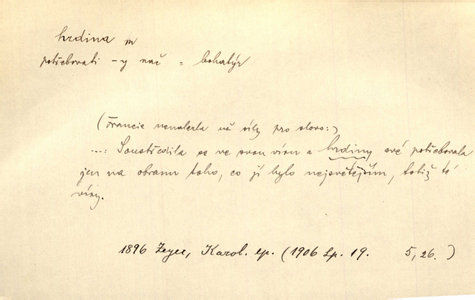 hrdina m
potřebovati -y nač = bohatýr
(Francie nenalezla už síly pro slovo:)
...: Soustředila se ve svou víru a hrdiny své potřebovala
jen na obranu toho, co jí bylo nejsvětějším, totiž té
víry.
1896 Zeyer, Karol. ep. (1906 Sp. 19. 5,26.)